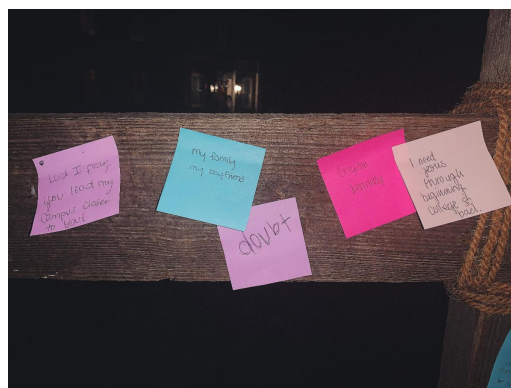 Lord I pray
you lead my
campus closer
to you!
my family
my boyfriend
doubt
family
I need
Jesus
through
beginning
college st
bad!